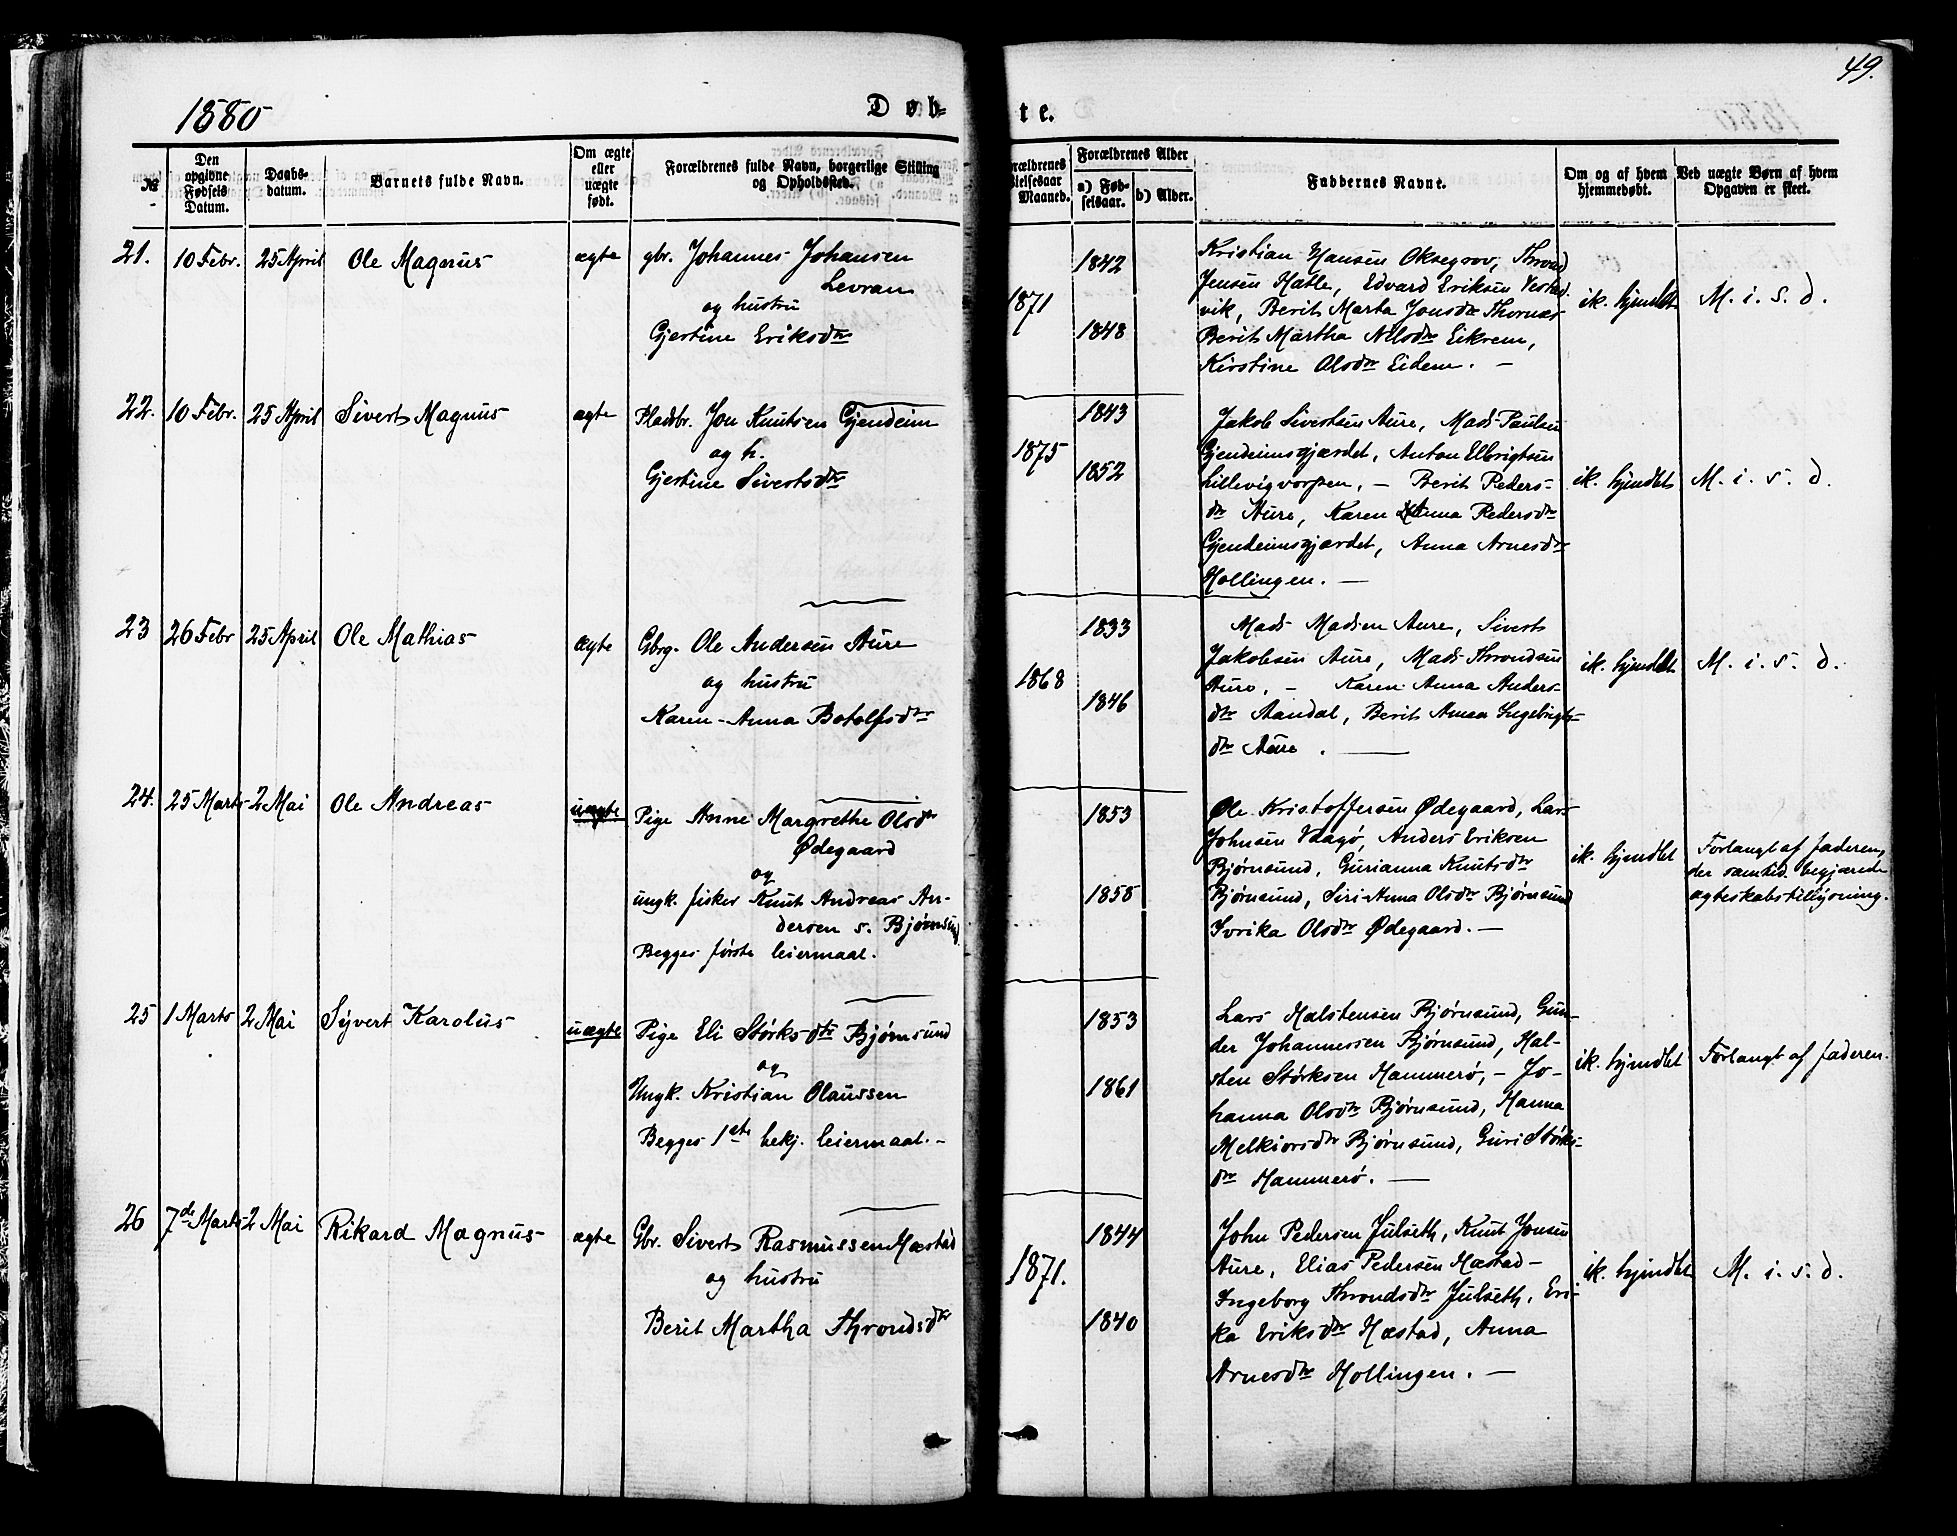 49.
1880
Døb-
te.
№
Den opgivne Fødsels Datum.
Daabs-datum.
Barnets fulde Navn.
Om ægte eller uægte født.
Forældrenes fulde Navn, borgerlige Stilling og Opholdssted.
Forældrenes Alder
a) Fød-selsaar.
b) Alder.
Faddernes Navne.
Om og af hvem hjemmedøbt.
Ved uægte Børn af hvem Opgaven er skeet.
21. 10 Febr. 25 April Ole Magnus ægte
gbr. Johannes Johansen
Levran
og hustru
Gjertine Eriksdtr
1871
1842
1848
Kristian Hansen Oksegrov, Thrond
Jensen Hatle, Edvard Eriksen Vestad
vik, Berit Marta Jonsdtr Thornæs
Berit Martha Nilsdtr Eikrem,
Kirstine Olsdtr Eidem. —
ik. hjmdbt
M. i. s. d.
22. 10 Febr. 25 April Sivert Magnus ægte
Pladsbr. Jon Knutsen Gjendeim
og h.
Gjertine Sivertsdtr
1875
1843
1852
Jakob Sivertsen Aure, Mads Paulsen
Gjendeimsgjærdet, Anton Elbrigtsen
Lillevigvorpen, — Berit Peders-
dtr Aure, Karen Anna Pedersdtr
Gjendeimsgjærdet, Anna Arnesdtr
Hollingen. —
ik. hjmdbt
M. i. s. d.
23 26 Febr 25 April Ole Mathias ægte
Gbrg. Ole Andersen Aure
og hustru
Karen-Anna Botolfsdtr
1868
1833
1846
Mads Madsen Aure, Sivert
Jakobsen Aure, Mads Throndsen
Aure, — Karen Anna Anders-
dtr Aandal, Berit Anna Ingebrigts-
dtr Aure . —
ik. hjmdbt
M. i. s. d.
24. 25 Marts 2 Mai Ole Andreas uægte
Pige Anne Margrethe Olsdtr
Ødegaard
og
ungk. fisker Knut Andreas An-
dersen s. Bjørnsund
Begges første leiermaal.
1853
1858
Ole Kristoffersen Ødegaard, Lars
Johnsen Vaagø, Anders Eriksen
Bjørnsund, Gurianna Knutsdtr
Bjørnsund, Siri-Anna Olsdtr Bjørnsund
Ivrika Olsdtr Ødegaard. —
ik. hjmdbt
Forlangt af faderen,
der samtid. begjærede
ægteskabstillysning.
25 1 Marts 2 Mai Syvert Karolus uægte
Pige Eli Størksdtr Bjørnsund
og
Ungk. Kristian Olaussen
Begges 1ste bekj. leiermaal. -
1853
1861
Lars Halstensen Bjørnsund, Gun-
der Johannessen Bjørnsund, Hal-
sten Størksen Hammerø, — Jo-
hanna Olsdtr Bjørnsund, Hanna
Melkiorsdtr Bjørnsund, Guri Størks-
dtr Hammerø. —
ik. hjmdbt
Forlangt af faderen.
26 7de Marts 2 Mai Rikard Magnus- ægte
Gbr. Sivert Rasmussen Mæstad
og hustru
Berit Martha Throndsdtr
1871.
1844
1840
John Pedersen Julseth, Knut Jonsen
Aure, Elias Pedersen Mæstad —
Ingeborg Throndsdtr Julseth, Eri-
ka Eriksdtr Mæstad, Anna
Arnesdtr Hollingen. —
ik. hjmdbt
M. i. s. d.